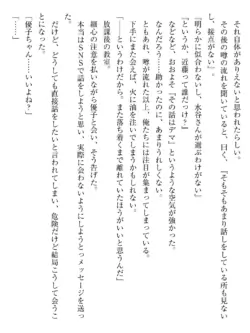 それ自体がありえないと思われたらしい。
と、噂の流れを聞いていると、曰く、『そもそもあまり話しをしている所も見ない』
『明らかに似合わないし、水谷さんが選ぶわけがない』
『というか、近藤って誰だっけ？』
などなど、おおよそ『その話はデマ』というような空気が強かった。
なんだろう……助かったのに、あまりうれしくない。
とはいえ、噂が流れた以上、俺たちには注目が集まってしまっている。
下手にまた会えば、火に油を注いでしまいかねない。
「――というわけだから、また落ち着くまで離れていたほうがいいと思うんだ」
放課後の教室。
細心の注意を払いながら優子に会い、そう告げた。
本当はSNSで話そうとも思い、実際に会わないようにしようとっメッセージを送っ
たのだが、
だけど、どうしても直接話をしたいと言われてしまい、危険だけど結局こうして会うこ
とになった。
「優子ちゃん……いいよね？」
「……」